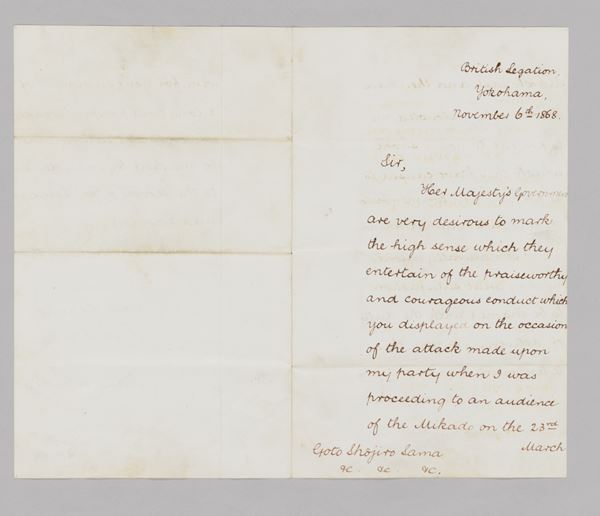 British Legation.
Yokohama,
November 6th 1868.
Sir,
Her Majesty's Government
are very desirous to mark
the high sense which they
entertain of the praiseworthy
and courageous conduct which
you displayed on the occasion
of the attack made upon
my party when I was
proceeding to an audience
of the Mikado on the 23rd
March
Goto Shojiro Sama
&c. &c. &c.